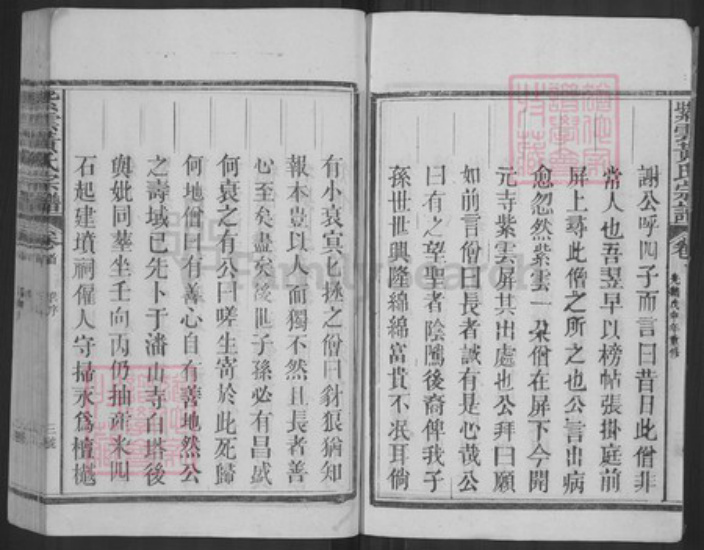 紫雲黃氏宗譜
卷
光緒戊申年重修
謝公呼四子而言曰昔日此僧非
常人也吾翌早以榜帖張掛庭前
屏上尋此僧之所之也公言出病
愈忽然紫雲一朵僧在屏下今開
元寺紫雲屏其出處也公拜曰願
如前言僧曰長者誠有是心哉公
曰有之望聖者陰隲後裔俾我子
孫世世興隆綿綿富貴不泯耳倘
有小衰寞匕拯之僧曰豺狼猶知
報本豈以人而獨不然且長者善
心至矣盡矣後世子孫必有昌盛
何衰之有公曰嗟生寄於此死歸
何地僧曰有善心自有善地然公
之壽域已先卜于潘山寺白塔後
與妣同塟坐壬向丙仍抽產米四
石起建墳祠僱人守掃永為檀樾
紫雲黃氏宗譜
卷首
三
FamilySearch